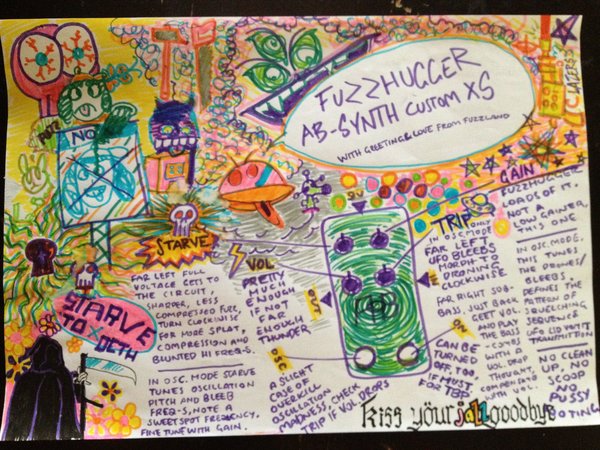 FUZZHUGGER
AB-SYNTH CUSTOM XS
WITH GREETING & LOVE FROM FUZZLAND
LAZERS
NO
STARVE
FAR LEFT FULL
VOLTAGE GETS TO
THE CIRCUIT,
SHARPER, LESS
COMPRESSED FUZZ,
TURN CLOCKWISE
FOR MORE SPLAT,
COMPRESSION AND
BLUNTED HI FREQ-S.
IN OSC. MODE STARVE
TUNES OSCILLATION
PITCH AND BLEEB
FREQ-S, NOTE A
SWEET SPOT FREQUENCY,
FINE TUNE WITH GAIN.
STARVE
TO X DETH
VOL
PRETTY
MUCH
ENOUGH
IF NOT
FAR
ENOUGH
THUNDER
OSC
A SLIGHT
CASE OF
OVERKILL
OSCILLATION
MADNESS, CHECK
TRIP IF VOL. DROPS
9V
OUT
IN
TRIP
IN OSC. MODE ONLY
FAR LEFT
UFO BLEEBS
MORPH TO
DRONING
CLOCKWISE.
FAR RIGHT SUB-
BASS, JUST BACK
UP AND PLAY
THE BASS
COMES WITH
VOL. DROP
THOUGHT,
COMPENSATE
WITH VOL.
ON
CAN BE
TURNED
OFF, TOO,
IF MUST
FOR TBP
GAIN
FUZZHUGGER
LOADS OF IT.
NOT A
LOW GAINER,
THIS ONE
IN OSC. MODE,
THIS TUNES
THE DRONES/
BLEEBS.
DEFINES THE
PATTERN OF
SQUELCHING
UFO LID VOMIT
TRANSMITTION
NO CLEAN
UP, NO
SCOOP
NO
PUSSY
FOOTING
kiss your jazz goodbye